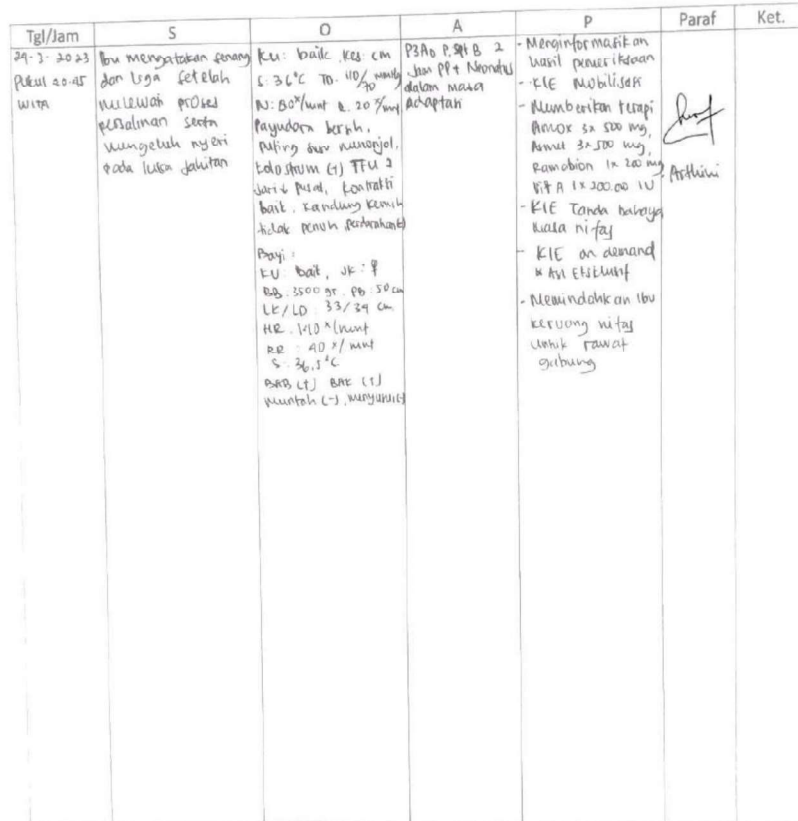 Tgl/Jam S O A P Paraf Ket.
29-3-2023
Pukul 20.45
WITA
Ibu mengatakan senang
dan lega setelah
melewati proses
persalinan serta
mengeluh nyeri
pada luka jahitan
KU: baik, Kes: cm
S: 36°C TD: 110/70 mmHg
N: 80x/mnt R: 20x/mnt
Payudara bersih,
puting susu menonjol,
kolostrum (+) TFU 2
jari ↓ pusat, kontraksi
baik, kandung kemih
tidak penuh, perdarahan(-)
Bayi:
KU: baik, JK: ♀
BB: 3500 gr, PB: 50 cm
LK/LD: 33/34 cm
HR: 140 x/mnt
RR: 40 x/mnt
S: 36,5°C
BAB (+) BAK (+)
Muntah (-), menyusu
P3A0 P.Spt B 2
Jam PP + Neonatus
dalam masa
Adaptasi
- Menginformasikan
hasil pemeriksaan
- KIE Mobilisasi
- Memberikan terapi
Amox 3x500 mg,
3x500 mg,
Ramabion 1x200 mg,
Vit A 1x200.00 IU
- KIE Tanda bahaya
masa nifas
- KIE on demand
& Asi Eksklusif
- Memindahkan Ibu
keruang nifas
untuk rawat
gabung
Arthini